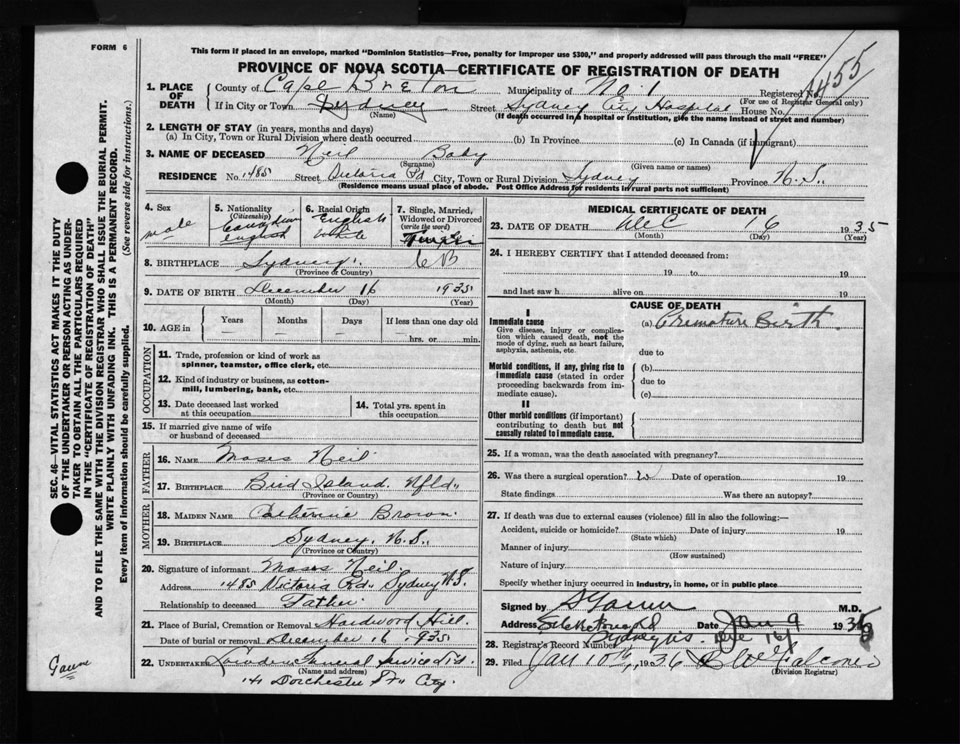 FORM 6
This form if placed in an envelope, marked "Dominion Statistics—Free, penalty for improper use $300," and properly addressed will pass through the mail "FREE"
PROVINCE OF NOVA SCOTIA—CERTIFICATE OF REGISTRATION OF DEATH
1. PLACE OF DEATH
County of Cape Breton Municipality of No. 1 Registered No.
(For use of Registrar General only)
If in City or Town Sydney Street Sydney City Hospital House No.
(Name) (If death occurred in a hospital or institution, give the name instead of street and number)
2. LENGTH OF STAY (in years, months and days)
(a) In City, Town or Rural Division where death occurred (b) In Province (c) In Canada (if immigrant)
3. NAME OF DECEASED Neil Baby
(Surname) (Given name or names)
RESIDENCE No. 1485 Street City, Town or Rural Division Sydney Province N.S.
(Residence means usual place of abode. Post Office Address for residents in rural parts not sufficient)
4. Sex
male
5. Nationality
(Citizenship)
English
6. Racial Origin
English
White
7. Single, Married, Widowed or Divorced
(write the word)
8. BIRTHPLACE Sydney
(Province or Country)
9. DATE OF BIRTH December 16 1935
(Month) (Day) (Year)
10. AGE in Years Months Days If less than one day old
hrs. or min.
OCCUPATION
11. Trade, profession or kind of work as spinner, teamster, office clerk, etc.
12. Kind of industry or business, as cotton-mill, lumbering, bank, etc.
13. Date deceased last worked at this occupation
14. Total yrs. spent in this occupation
15. If married give name of wife or husband of deceased
FATHER
16. NAME Moses Neil
17. BIRTHPLACE Bird Island Nfld.
(Province or Country)
MOTHER
18. MAIDEN NAME Catherine Brown
19. BIRTHPLACE Sydney, N.S.
(Province or Country)
20. Signature of informant Moses Neil
Address 1485 Victoria Rd. Sydney N.S.
Relationship to deceased Father
21. Place of Burial, Cremation or Removal Hardwood Hill
Date of burial or removal December 16 1935
22. UNDERTAKER Funeral Service
(Name and address)
Dorchester St. City.
MEDICAL CERTIFICATE OF DEATH
23. DATE OF DEATH Dec 16 1935
(Month) (Day) (Year)
24. I HEREBY CERTIFY that I attended deceased from:
19 to 19
and last saw h alive on 19
CAUSE OF DEATH
I
Immediate cause
Give disease, injury or complication which caused death, not the mode of dying, such as heart failure, asphyxia, asthenia, etc.
(a) Premature Birth
due to
Morbid conditions, if any, giving rise to immediate cause (stated in order proceeding backwards from immediate cause).
(b)
due to
(c)
II
Other morbid conditions (if important) contributing to death but not causally related to immediate cause.
25. If a woman, was the death associated with pregnancy?
26. Was there a surgical operation? Date of operation 19
State findings Was there an autopsy?
27. If death was due to external causes (violence) fill in also the following:—
Accident, suicide or homicide? Date of injury 19
(State which)
Manner of injury
(How sustained)
Nature of injury
Specify whether injury occurred in industry, in home, or in public place
Signed by M.D.
Address Date Jan 9 1936
28. Registrar's Record Number
29. Filed Jan 10th, 1936
(Division Registrar)
SEC. 46—VITAL STATISTICS ACT MAKES IT THE DUTY
OF THE UNDERTAKER OR PERSON ACTING AS UNDERTAKER TO OBTAIN ALL THE PARTICULARS REQUIRED
IN THE "CERTIFICATE OF REGISTRATION OF DEATH"
AND TO FILE THE SAME WITH THE DIVISION REGISTRAR WHO SHALL ISSUE THE BURIAL PERMIT.
WRITE PLAINLY WITH UNFADING INK. THIS IS A PERMANENT RECORD.
Every item of information should be carefully supplied. (See reverse side for instructions.)